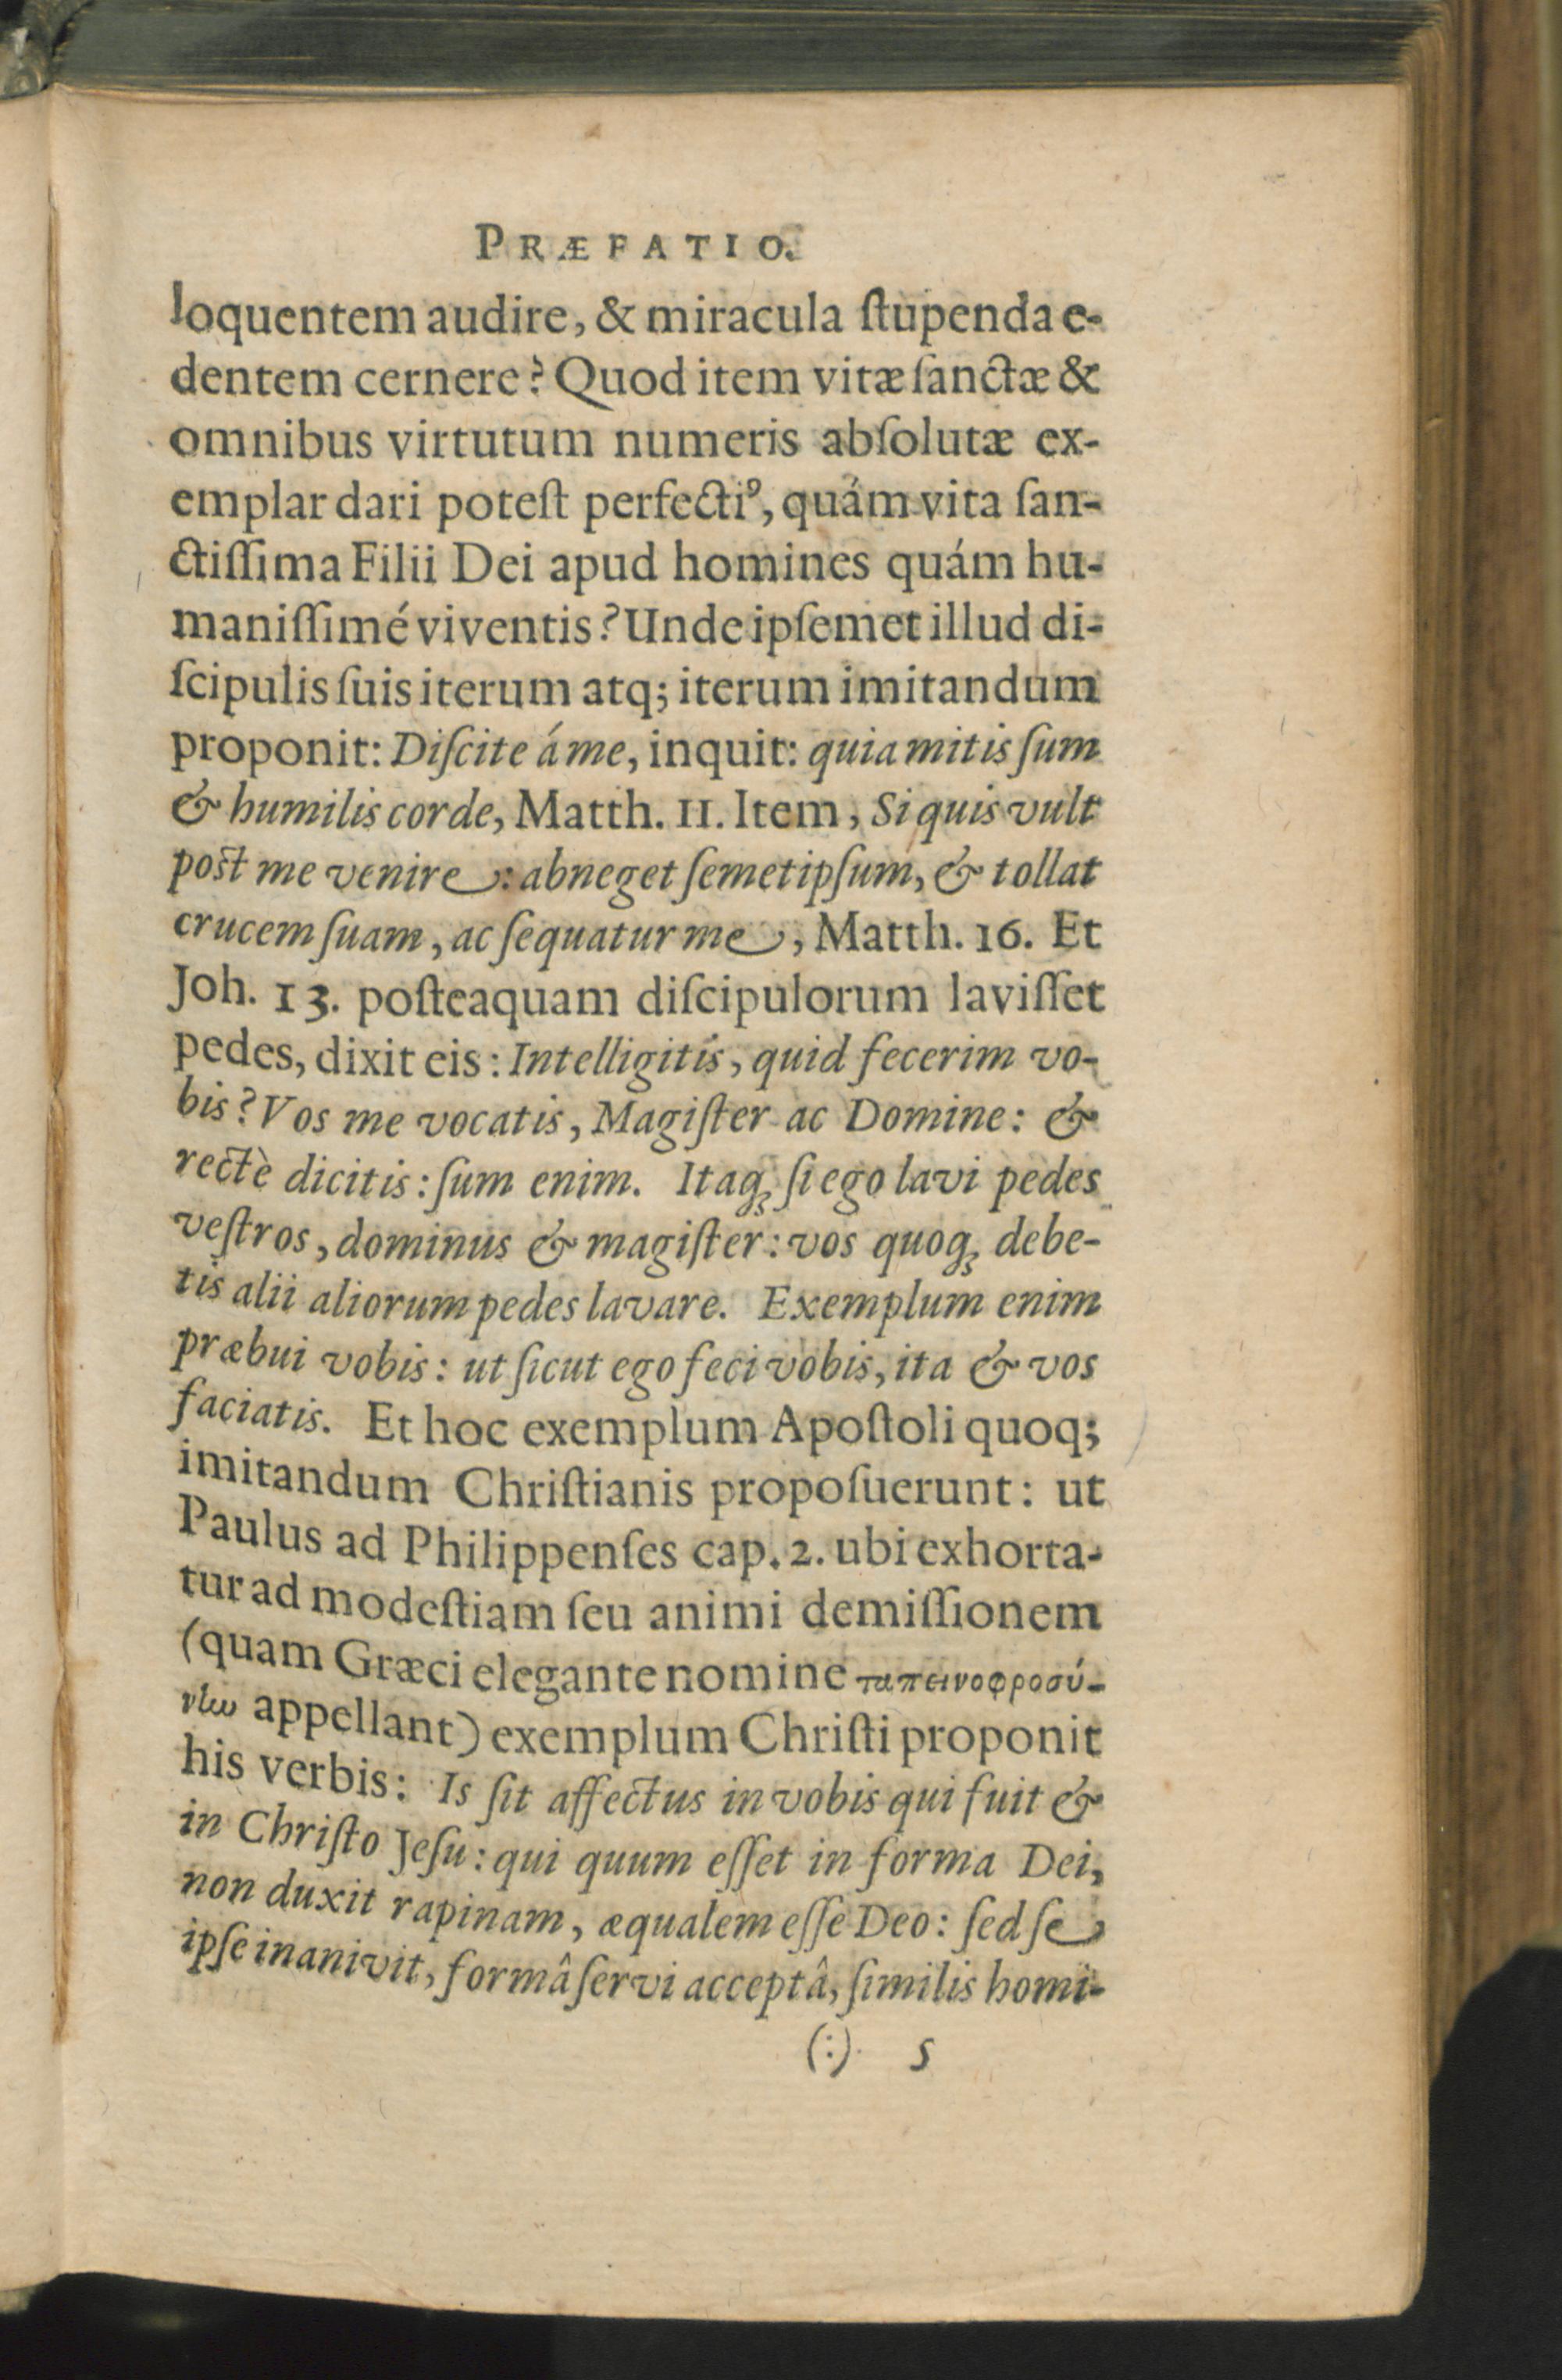 PRÆFATIO.
loquentem audire, & miracula ſtupenda e-
dentem cernere? Quod item vitæ ſanctæ &
omnibus virtutum numeris abſolutæ ex-
emplar dari poteſt perfectiꝰ, quám vita ſan-
ctiſſima Filii Dei apud homines quám hu-
maniſſimé viventis? Unde ipſemet illud di-
ſcipulis ſuis iterum atq; iterum imitandum
proponit: Diſcite á me, inquit: quia mitis ſum
& humilis corde, Matth. 11. Item, Si quis vult
poſt me venire: abneget ſemetipſum, & tollat
crucem ſuam, ac ſequatur me, Matth. 16. Et
Joh. 13. poſteaquam diſcipulorum laviſſet
pedes, dixit eis: Intelligitis, quid fecerim vo-
bis? Vos me vocatis, Magiſter ac Domine: &
rectè dicitis: ſum enim. Itaq; ſi ego lavi pedes
veſtros, dominus & magiſter: vos quoq; debe-
tis alii aliorum pedes lavare. Exemplum enim
præbui vobis: ut ſicut ego feci vobis, ita & vos
faciatis. Et hoc exemplum Apoſtoli quoq;
imitandum Chriſtianis propoſuerunt: ut
Paulus ad Philippenſes cap. 2. ubi exhorta-
tur ad modeſtiam ſeu animi demiſſionem
(quam Græci elegante nomine ταπεινοφροσύ-
νην appellant) exemplum Chriſti proponit
his verbis: Is ſit affectus in vobis qui fuit &
in Chriſto Jeſu: qui quum eſſet in forma Dei,
non duxit rapinam, æqualem eſſe Deo: ſed ſe
ipſe inanivit, formâ ſervi acceptâ, ſimilis homi-
(:) 5